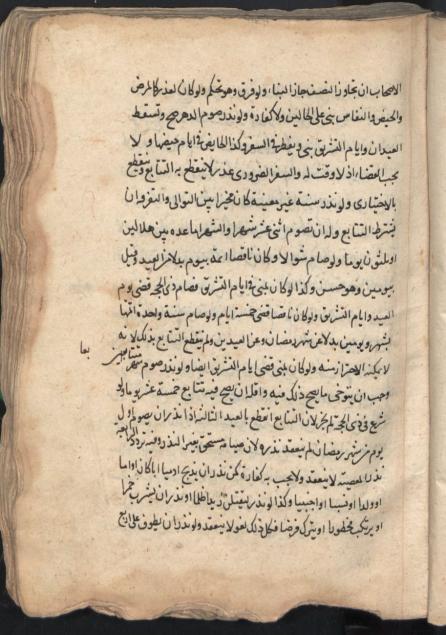 الاصحاب ان تجاوز النصف جاز البناء ولو فرق وهو تحكم ولو كان لعذر كالمرض
والحيض والنفاس بنى على الحالين ولا كفارة ولو نذر صوم الدهر صح وتسقط
العيدان وايام التشريق بمنى ويفطر في السفر وكذا الحايض في ايام حيضها ولا
يجب القضاء اذ لا وقت له والسفر الضروري عذر لا ينقطع به التتابع وينقطع
بالاختياري ولو نذر سنة غير معينة كان مخيرا بين التوالي والتفرق ان
لم يشترط التتابع وله ان يصوم اثنى عشر شهرا والشهر اما عدة بين هلالين
او ثلثون يوما ولو صام شوالا وكان ناقصا اتمه بيوم بدلا عن العيد وقيل
بيومين وهو حسن وكذا لو كان بمنى في ايام التشريق فصام ذى الحجة قضى يوم
العيد وايام التشريق ولو كان ناقصا قضى خمسة ايام ولو صام سنة واحدة اتمها
بشهر ويومين بدلا عن شهر رمضان وعن العيدين ولم ينقطع التتابع بذلك لانه
لا يمكنه الاحتراز منه ولو كان بمنى قضى ايام التشريق ايضا ولو نذر صوم شهر متتابعين
وجب ان يتوخى ما يصح ذلك فيه واقله ان يصح فيه تتابع خمسة عشر يوما ولو
شرع في ذى الحجة لم يجز لان التتابع انقطع بالعيد الثالثة اذا نذر ان يصوم اول
يوم من شهر رمضان لم ينعقد نذره لان صيامه مستحق بغير النذر وفيه تردد الرابعة
نذر المعصية لا ينعقد ولا يجب به كفارة كمن نذر ان يذبح ادميا ابا كان او اما
او ولدا او نسيبا او اجنبيا وكذا لو نذر ليقتلن زيدا ظلما او نذر ان يشرب خمرا
او يرتكب محظورا او يترك فرضا فكل ذلك لغو لا ينعقد ولو نذر ان يطوف على اربع